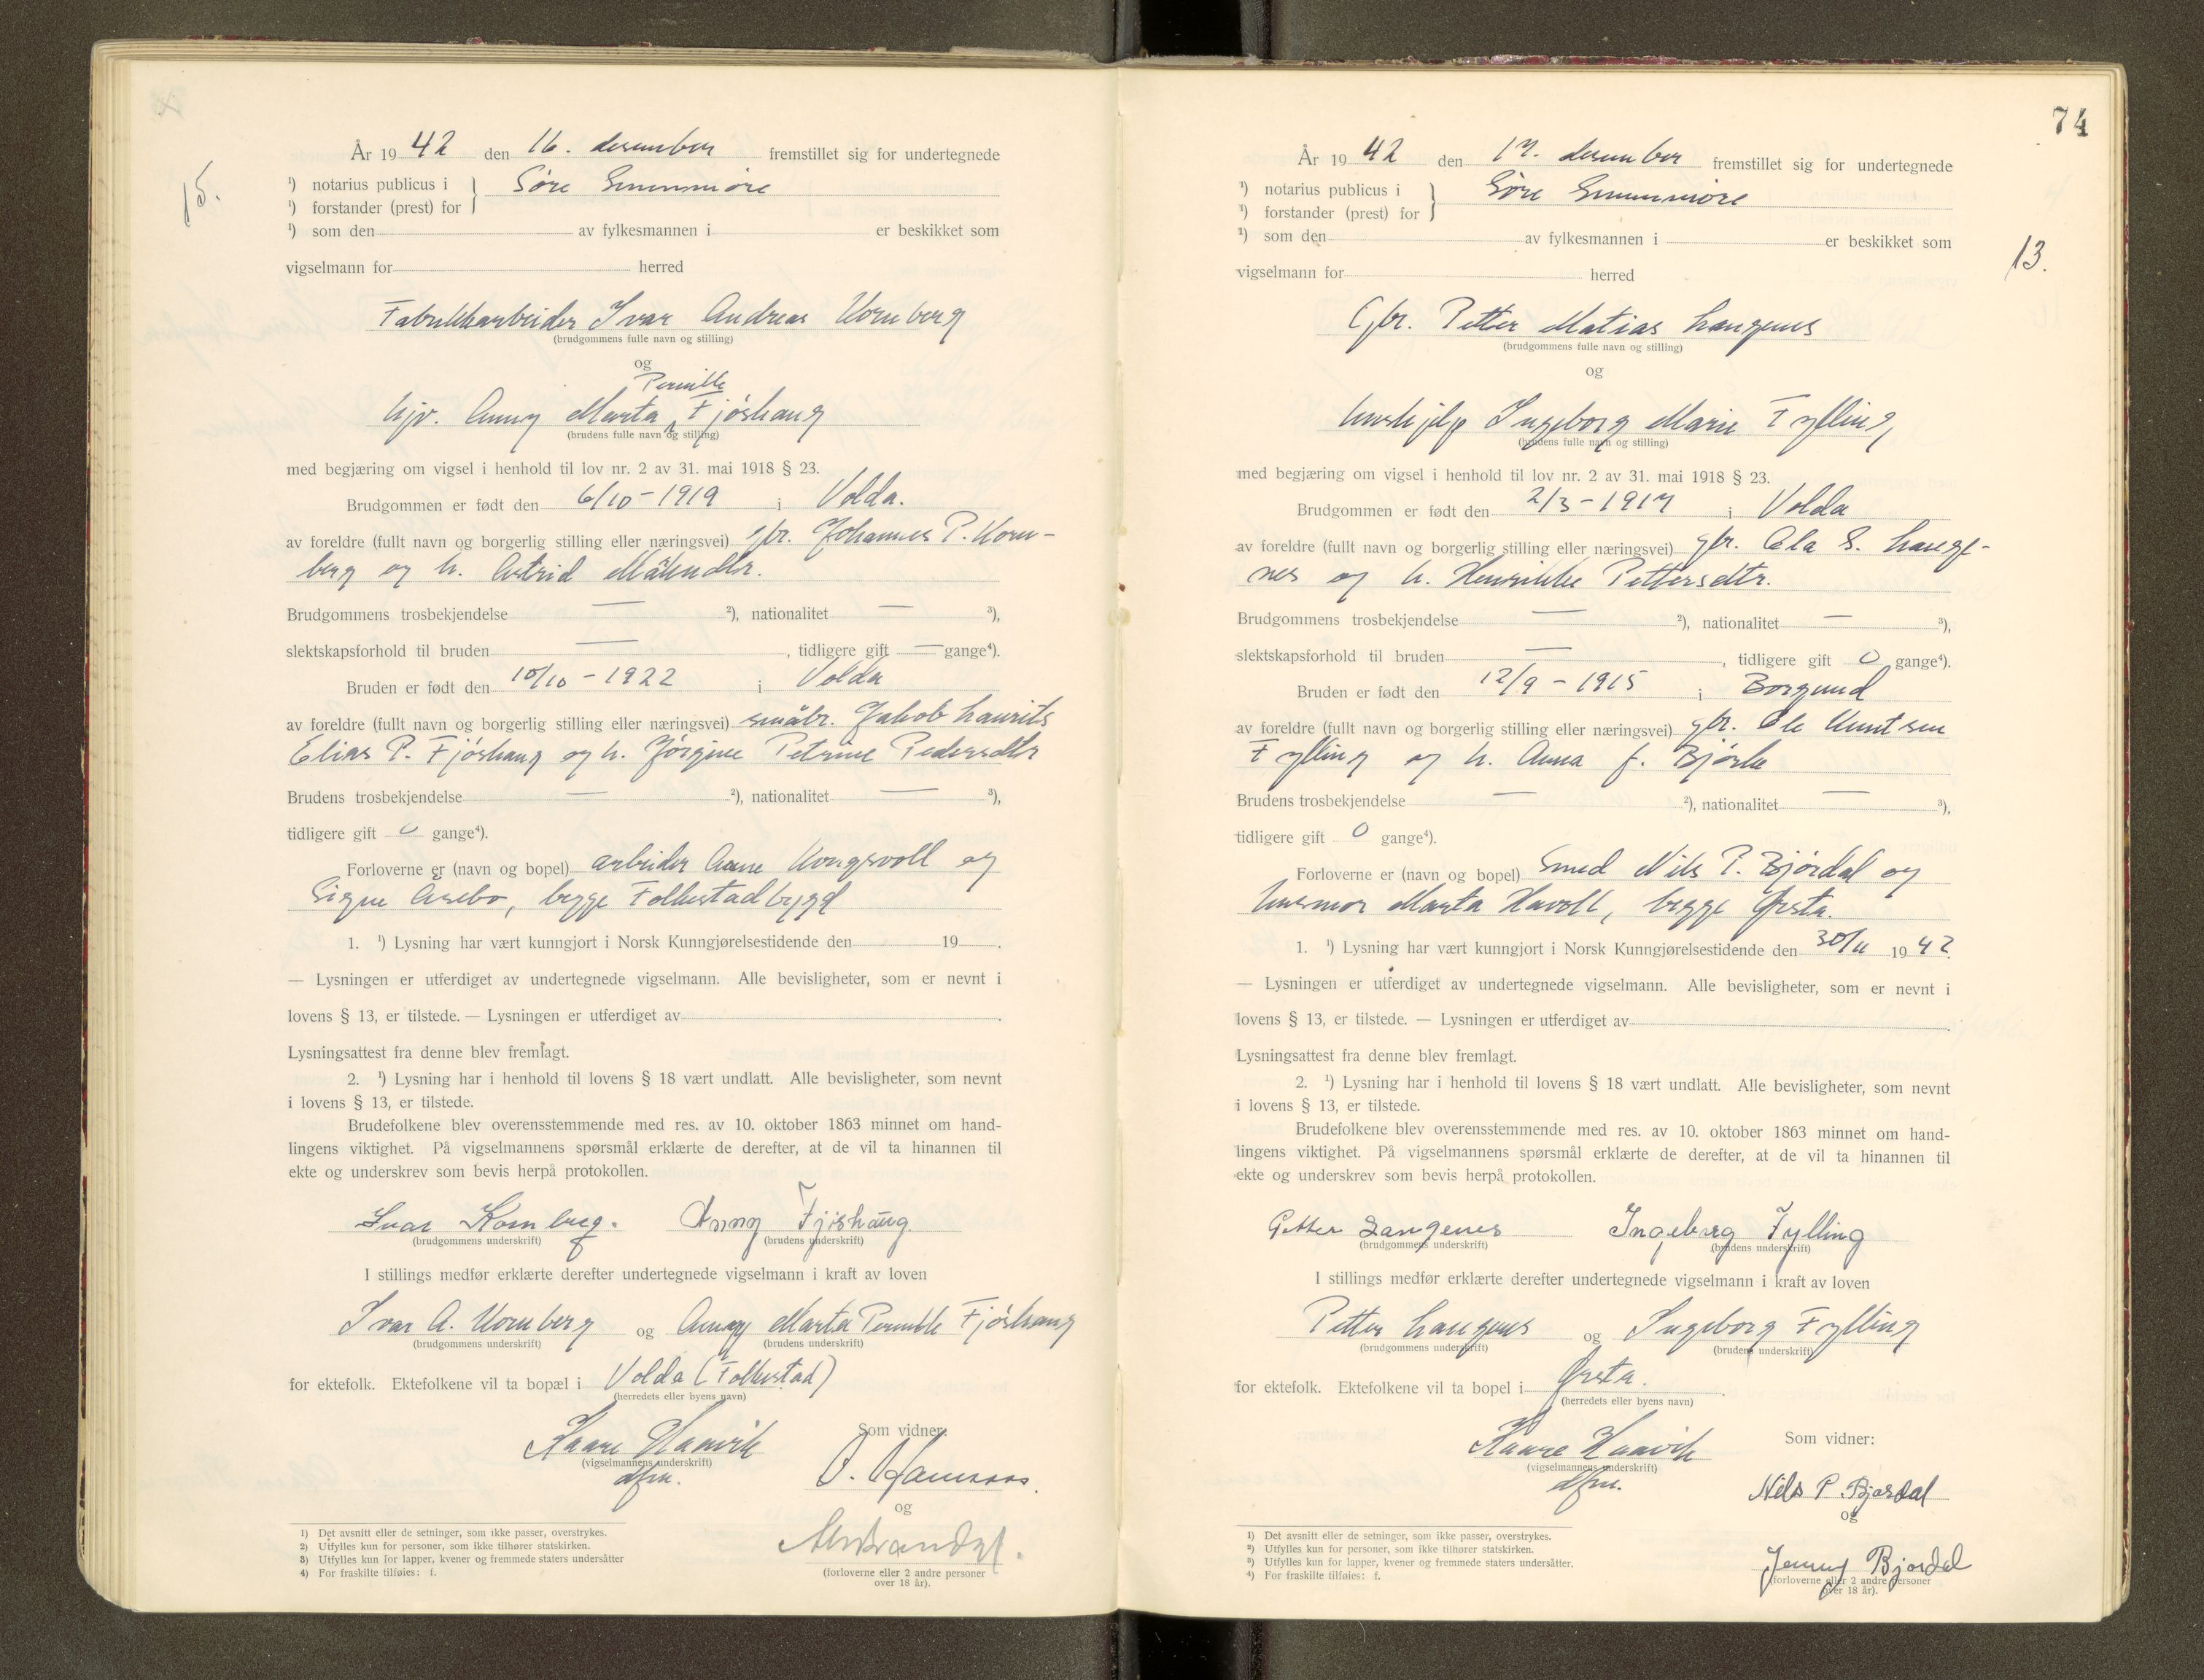 15.
År 1942 den 16. desember fremstillet sig for undertegnede
¹) notarius publicus i } Søre Sunnmøre
¹) forstander (prest) for
¹) som den av fylkesmannen i er beskikket som
vigselmann for herred
Fabrikkarbeider Ivar Andreas Kornberg
(brudgommens fulle navn og stilling)
og
Pernille
hjv. Anny Marta Fjóshaug
(brudens fulle navn og stilling)
med begjæring om vigsel i henhold til lov nr. 2 av 31. mai 1918 § 23.
Brudgommen er født den 6/10-1919 i Volda.
av foreldre (fullt navn og borgerlig stilling eller næringsvei) gbr. Johannes P. Korn-
berg og h. Astrid
Brudgommens trosbekjendelse — ²), nationalitet — ³),
slektskapsforhold til bruden — , tidligere gift — gange⁴).
Bruden er født den 10/10-1922 i Volda
av foreldre (fullt navn og borgerlig stilling eller næringsvei) småbr. Jakob Laurits
Elias P. Fjóshaug og h. Jórgine Petrine Pedersdtr
Brudens trosbekjendelse — ²), nationalitet — ³),
tidligere gift 0 gange⁴).
Forloverne er (navn og bopel) arbeider Kongsvoll og
Signe Åsebø, begge Folkestadbygd
1. ¹) Lysning har vært kunngjort i Norsk Kunngjørelsestidende den 19 .
— Lysningen er utferdiget av undertegnede vigselmann. Alle bevisligheter, som er nevnt i
lovens § 13, er tilstede. — Lysningen er utferdiget av .
Lysningsattest fra denne blev fremlagt.
2. ¹) Lysning har i henhold til lovens § 18 vært undlatt. Alle bevisligheter, som nevnt
i lovens § 13, er tilstede.
Brudefolkene blev overensstemmende med res. av 10. oktober 1863 minnet om hand-
lingens viktighet. På vigselmannens spørsmål erklærte de derefter, at de vil ta hinannen til
ekte og underskrev som bevis herpå protokollen.
Ivar Kornberg. Anny Fjøshaug.
(brudgommens underskrift) (brudens underskrift)
I stillings medfør erklærte derefter undertegnede vigselmann i kraft av loven
Ivar A. Kornberg og Anny Marta Pernille Fjóshaug
(brudgommens underskrift) (brudens underskrift)
for ektefolk. Ektefolkene vil ta bopæl i Volda (Folkestad)
(herredets eller byens navn)
Kaare Haavik
(vigselmannens underskrift)
dfm.
Som vidner:
og
(forloverne eller 2 andre personer
over 18 år).
1) Det avsnitt eller de setninger, som ikke passer, overstrykes.
2) Utfylles kun for personer, som ikke tilhører statskirken.
3) Utfylles kun for lapper, kvener og fremmede staters undersåtter
4) For fraskilte tilføies: f.
74
13.
År 1942 den 17. desember fremstillet sig for undertegnede
¹) notarius publicus i } Søre Sunnmøre
¹) forstander (prest) for
¹) som den av fylkesmannen i er beskikket som
vigselmann for herred
Gbr. Petter Matias Langenes
(brudgommens fulle navn og stilling)
og
hushjelp Ingeborg Marie Fylling,
(brudens fulle navn og stilling)
med begjæring om vigsel i henhold til lov nr. 2 av 31. mai 1918 § 23.
Brudgommen er født den 2/3-1917 i Volda
av foreldre (fullt navn og borgerlig stilling eller næringsvei) gbr. Ola S. Lange-
nes og h. Henrikke Pettersdtr.
Brudgommens trosbekjendelse — ²), nationalitet — ³),
slektskapsforhold til bruden — , tidligere gift 0 gange⁴).
Bruden er født den 12/9-1915 i Borgund
av foreldre (fullt navn og borgerlig stilling eller næringsvei) gbr. Ole Knutsen
Fylling og h. Anna f. Bjórke
Brudens trosbekjendelse — ²), nationalitet — ³),
tidligere gift 0 gange⁴).
Forloverne er (navn og bopel) Smed Nils P. Bjórdal og
husmor Marta Havoll, begge Ørsta.
1. ¹) Lysning har vært kunngjort i Norsk Kunngjørelsestidende den 30/11 1942.
— Lysningen er utferdiget av undertegnede vigselmann. Alle bevisligheter, som er nevnt i
lovens § 13, er tilstede. — Lysningen er utferdiget av .
Lysningsattest fra denne blev fremlagt.
2. ¹) Lysning har i henhold til lovens § 18 vært undlatt. Alle bevisligheter, som nevnt
i lovens § 13, er tilstede.
Brudefolkene blev overensstemmende med res. av 10. oktober 1863 minnet om hand-
lingens viktighet. På vigselmannens spørsmål erklærte de derefter, at de vil ta hinannen til
ekte og underskrev som bevis herpå protokollen.
Petter Langenes Ingeborg Fylling
(brudgommens underskrift) (brudens underskrift)
I stillings medfør erklærte derefter undertegnede vigselmann i kraft av loven
Petter Langenes og Ingeborg Fylling
(brudgommens underskrift) (brudens underskrift)
for ektefolk. Ektefolkene vil ta bopel i Ørsta.
(herredets eller byens navn)
Kaare Haavik
(vigselmannens underskrift)
dfm.
Som vidner:
Nils P. Bjørdal
og
Jenny Bjordal
(forloverne eller 2 andre personer
over 18 år).
1) Det avsnitt eller de setninger, som ikke passer, overstrykes.
2) Utfylles kun for personer, som ikke tilhører statskirken.
3) Utfylles kun for lapper, kvener og fremmede staters undersåtter.
4) For fraskilte tilføies: f.